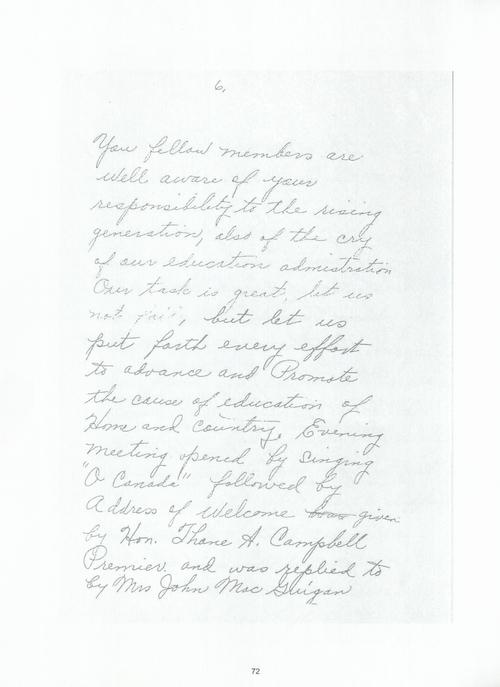 6,
You fellow members are
well aware of your
responsibility to the rising
generation, also of the cry
of our education admistration
Our task is great, let us
not fail, but let us
put forth every effort
to advance and Promote
the cause of education of
Home and country, Evening
meeting opened by singing
"O Canada" followed by
Address of Welcome was given
by Hon. Thane A. Campbell
Premier. and was replied to
by Mrs John Mac Guigan
72